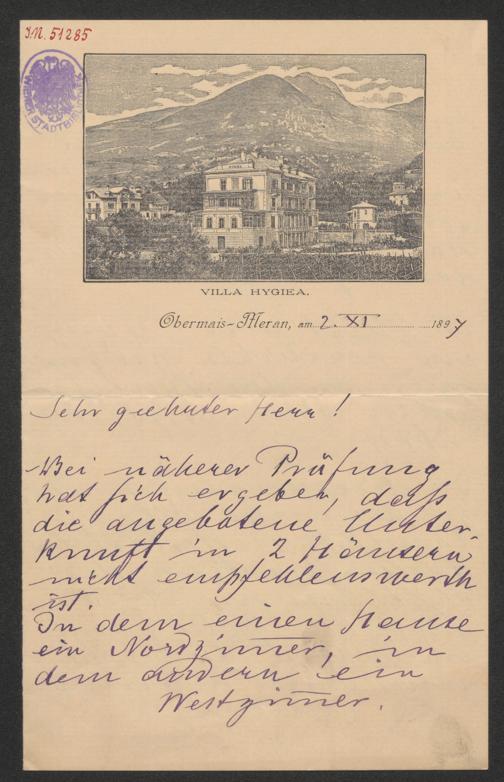 I.N. 51285
WIENER STADTBIBLIOTHEK
VILLA HYGIEA.
Obermais-Meran, am 2. XI 1897
Sehr geehrter Herr!
Bei näherer Prüfung
hat sich ergeben, dass
die angebotene Unter-
kunft in 2 Häusern
nicht empfehlenswerth
ist.
In dem einen Hause
ein Nordzimmer, in
dem andern ein
Westzimmer.